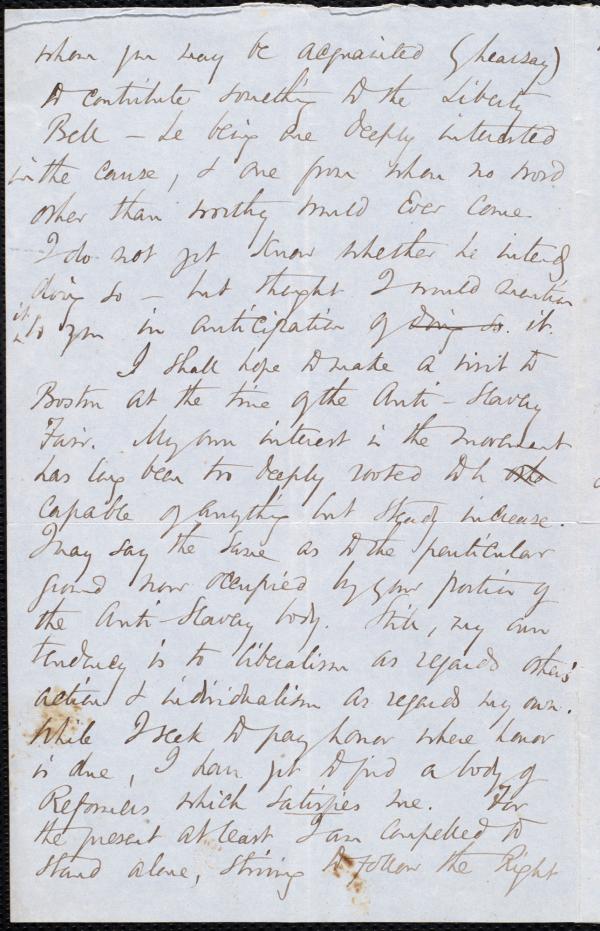 whom you may be acquainted (hearsay)
to contribute something to the Liberty
Bell – he being one deeply interested
in the cause, & one from whom no word
other than worthy would ever come.
I do not yet know whether he intends
doing so – but thought I would mention
it to you in anticipation of doing so. it.
I shall hope to make a visit to
Boston at the time of the Anti-Slavery
Fair. My own interest in the movement
has long been too deeply rooted to be
capable of anything but steady increase.
I may say the same as to the particular
ground now occupied by your portion of
the Anti-Slavery body. Still, my own
tendency is to liberalism as regards other's
action & individualism as regards my own.
While I seek to pay honor where honor
is due, I have yet to find a body of
Reformers which satisfies me. For
the present at least I am compelled to
stand alone, striving to follow the Right